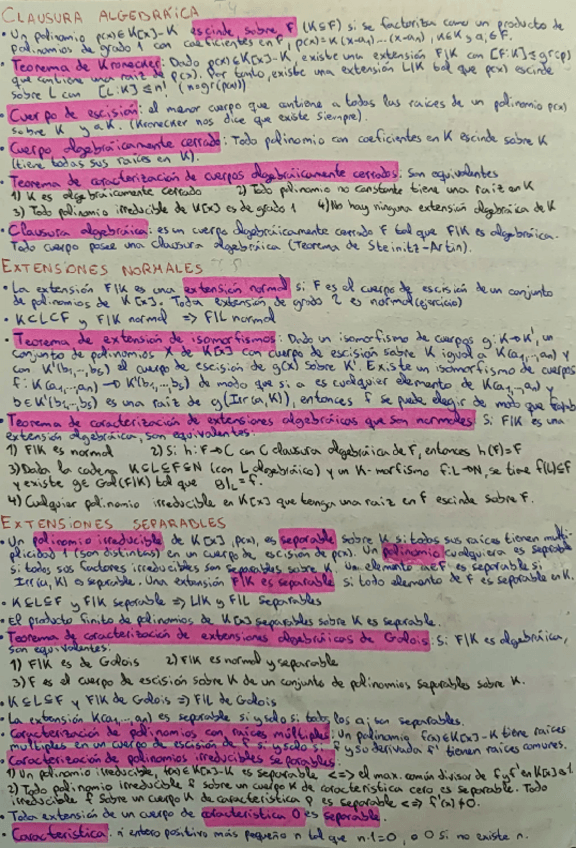 CLAUSURA ALGEBRAICA
• Un polinomio p(x)∈K[x]-K escinde sobre F (K≤F) si se factoriza como un producto de
polinomios de grado 1 con coeficientes en F, p(x)=k(x-a₁)...(x-aₙ), k∈K y aᵢ∈F.
• Teorema de Kronecker: Dado p(x)∈K[x]-K, existe una extensión F|K con [F:K]≤gr(p)
que contiene una raíz de p(x). Por tanto, existe una extensión L|K tal que p(x) escinde
sobre L con [L:K]≤n! (n=gr(p(x)))
• Cuerpo de escisión: el menor cuerpo que contiene a todas las raíces de un polinomio p(x)
sobre K y a K. (Kronecker nos dice que existe siempre).
• Cuerpo algebráicamente cerrado: Todo polinomio con coeficientes en K escinde sobre K
(tiene todas sus raíces en K).
• Teorema de caracterización de cuerpos algebráicamente cerrados: Son equivalentes
1) K es algebráicamente cerrado 2) Todo polinomio no constante tiene una raíz en K
3) Todo polinomio irreducible de K[x] es de grado 1 4) No hay ninguna extensión algebráica de K
• Clausura algebráica: es un cuerpo algebráicamente cerrado F tal que F|K es algebráica.
Todo cuerpo posee una clausura algebráica (Teorema de Steinitz-Artin).
EXTENSIONES NORMALES
• La extensión F|K es una extensión normal si F es el cuerpo de escisión de un conjunto
de polinomios de K[x]. Toda extensión de grado 2 es normal (ejercicio)
• K⊂L⊂F y F|K normal => F|L normal
• Teorema de extensión de isomorfismos: Dado un isomorfismo de cuerpos g: K→K', un
conjunto de polinomios X de K[x] con cuerpo de escisión sobre K igual a K(a₁,...,aₙ) y
con K'(b₁,...,bₛ) el cuerpo de escisión de g(x) sobre K'. Existe un isomorfismo de cuerpos
f: K(a₁,...,aₙ) → K'(b₁,...,bₛ) de modo que si a es cualquier elemento de K(a₁,...,aₙ) y
b∈K'(b₁,...,bₛ) es una raíz de g(Irr(a,K)), entonces f se puede elegir de modo que
• Teorema de caracterización de extensiones algebráicas que son normales Si F|K es una
extensión algebráica, son equivalentes:
1) F|K es normal 2) Si h: F→C con C clausura algebráica de F, entonces h(F)=F
3) Dada la cadena K≤L≤F≤N (con L algebráico) y un K-morfismo f:L→N, se tiene f(L)≤F
y existe g∈Gal(F|K) tal que g|L=f.
4) Cualquier polinomio irreducible en K[x] que tenga una raíz en F escinde sobre F.
EXTENSIONES SEPARABLES
• Un polinomio irreducible de K[x], p(x), es separable sobre K si todas sus raíces tienen multi-
plicidad 1 (son distintas) en un cuerpo de escisión de p(x). Un polinomio cualquiera es separable
si todos sus factores irreducibles son separables sobre K. Un elemento a∈F es separable si
Irr(a,K) es separable. Una extensión F|K es separable si todo elemento de F es separable en K.
• K≤L≤F y F|K separable => L|K y F|L separables
• El producto finito de polinomios de K[x] separables sobre K es separable.
• Teorema de caracterización de extensiones algebráicas de Galois: Si F|K es algebráica,
son equivalentes:
1) F|K es de Galois 2) F|K es normal y separable
3) F es el cuerpo de escisión sobre K de un conjunto de polinomios separables sobre K.
• K≤L≤F y F|K de Galois => F|L de Galois
• La extensión K(a₁,...,aₙ) es separable si y solo si todos los aᵢ son separables.
• Caracterización de polinomios con raíces múltiples: Un polinomio f(x)∈K[x]-K tiene raíces
múltiples en un cuerpo de escisión de f si y solo si f y su derivada f' tienen raíces comunes.
• Caracterización de polinomios irreducibles separables:
1) Un polinomio irreducible, f(x)∈K[x]-K es separable <=> el max. común divisor de f y f' en K[x] es 1.
2) Todo polinomio irreducible f sobre un cuerpo K de característica cero es separable. Todo
irreducible f sobre un cuerpo K de característica p es separable <=> f'(x)≠0.
• Toda extensión de un cuerpo de característica 0 es separable.
• Característica: n entero positivo más pequeño n tal que n·1=0, o 0 si no existe n.